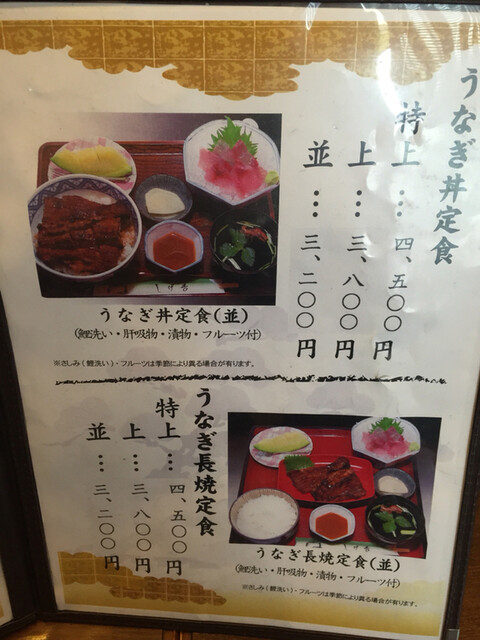 うなぎ丼定食
特上…四、五〇〇円
上…三、八〇〇円
並…三、二〇〇円
うなぎ丼定食(並)
(鯉洗い・肝吸物・漬物・フルーツ付)
※さしみ(鯉洗い)・フルーツは季節により異る場合が有ります。
うなぎ長焼定食
特上…四、五〇〇円
上…三、八〇〇円
並…三、二〇〇円
うなぎ長焼定食(並)
(鯉洗い・肝吸物・漬物・フルーツ付)
※さしみ(鯉洗い)・フルーツは季節により異る場合が有ります。